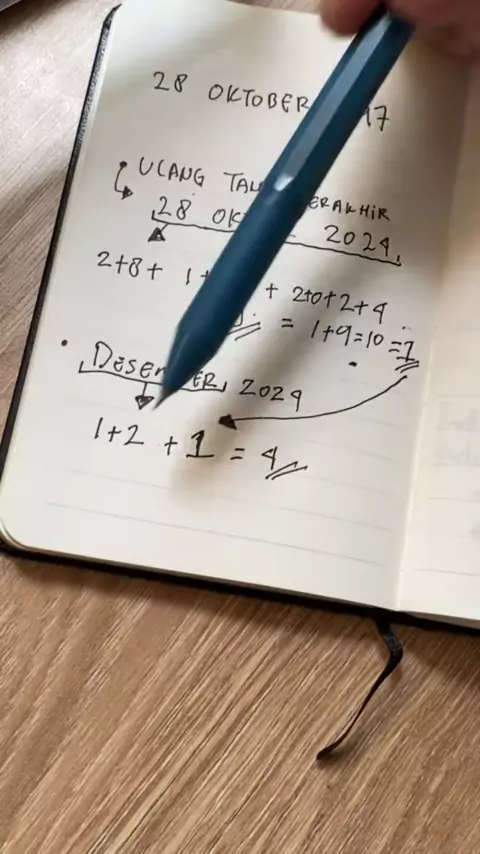 28 OKTOBER 17
ULANG TAN ERAKHIR
28 OK 2024.
2+8+ 1+ + 2+0+2+4
= 1+9=10=1
DESEMBER, 2024
1+2 +1 = 4